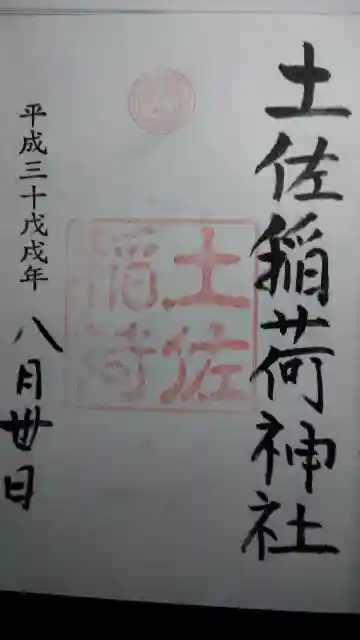 土佐稲荷神社
土佐
稲荷
平成三十戊戌年 八月卅日